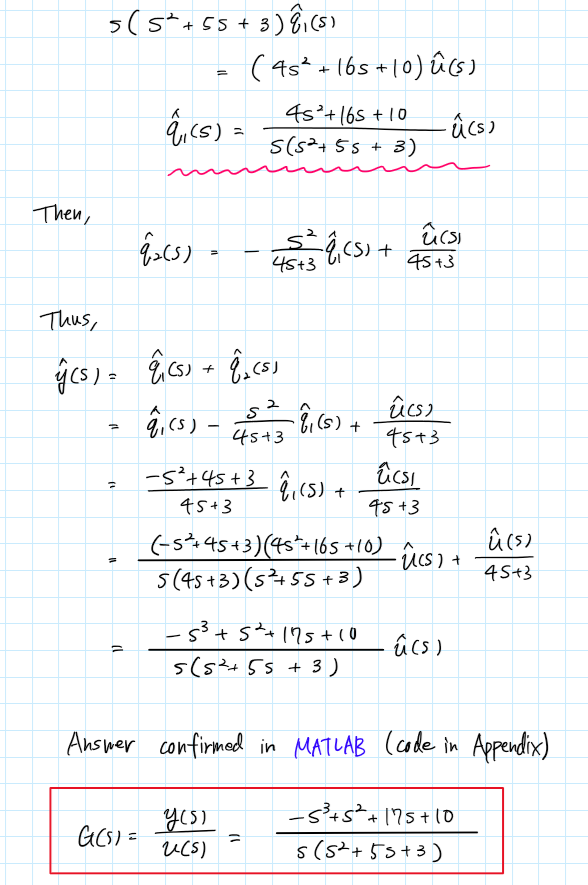 s(s²+5s+3)q̂₁(s)
= (4s²+16s+10)û(s)
q̂₁(s) = (4s²+16s+10)/(s(s²+5s+3)) û(s)
Then,
q̂₂(s) = - s²/(4s+3) q̂₁(s) + û(s)/(4s+3)
Thus,
ŷ(s) = q̂₁(s) + q̂₂(s)
= q̂₁(s) - s²/(4s+3) q̂₁(s) + û(s)/(4s+3)
= (-s²+4s+3)/(4s+3) q̂₁(s) + û(s)/(4s+3)
= (-s²+4s+3)(4s²+16s+10)/(s(4s+3)(s²+5s+3)) û(s) + û(s)/(4s+3)
= (-s³+s²+17s+10)/(s(s²+5s+3)) û(s)
Answer confirmed in MATLAB (code in Appendix)
G(s) = y(s)/u(s) = (-s³+s²+17s+10)/(s(s²+5s+3))